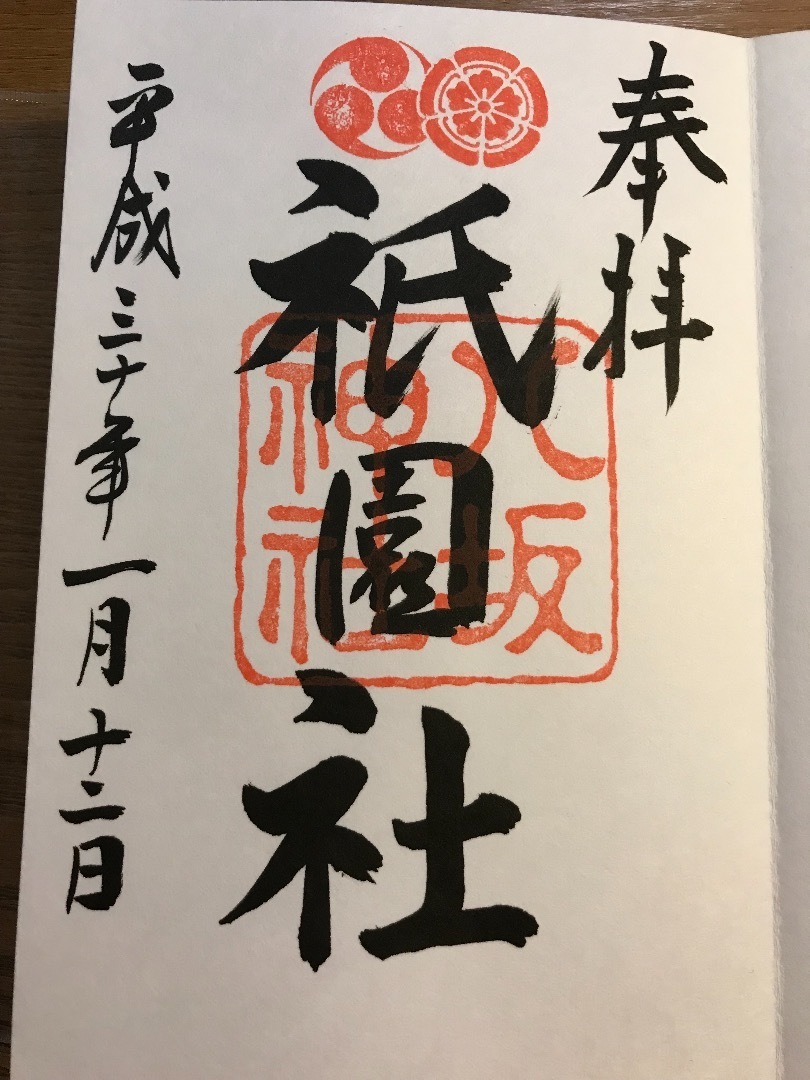 奉拝
祇園社
八坂
神社
平成三十年一月十二日